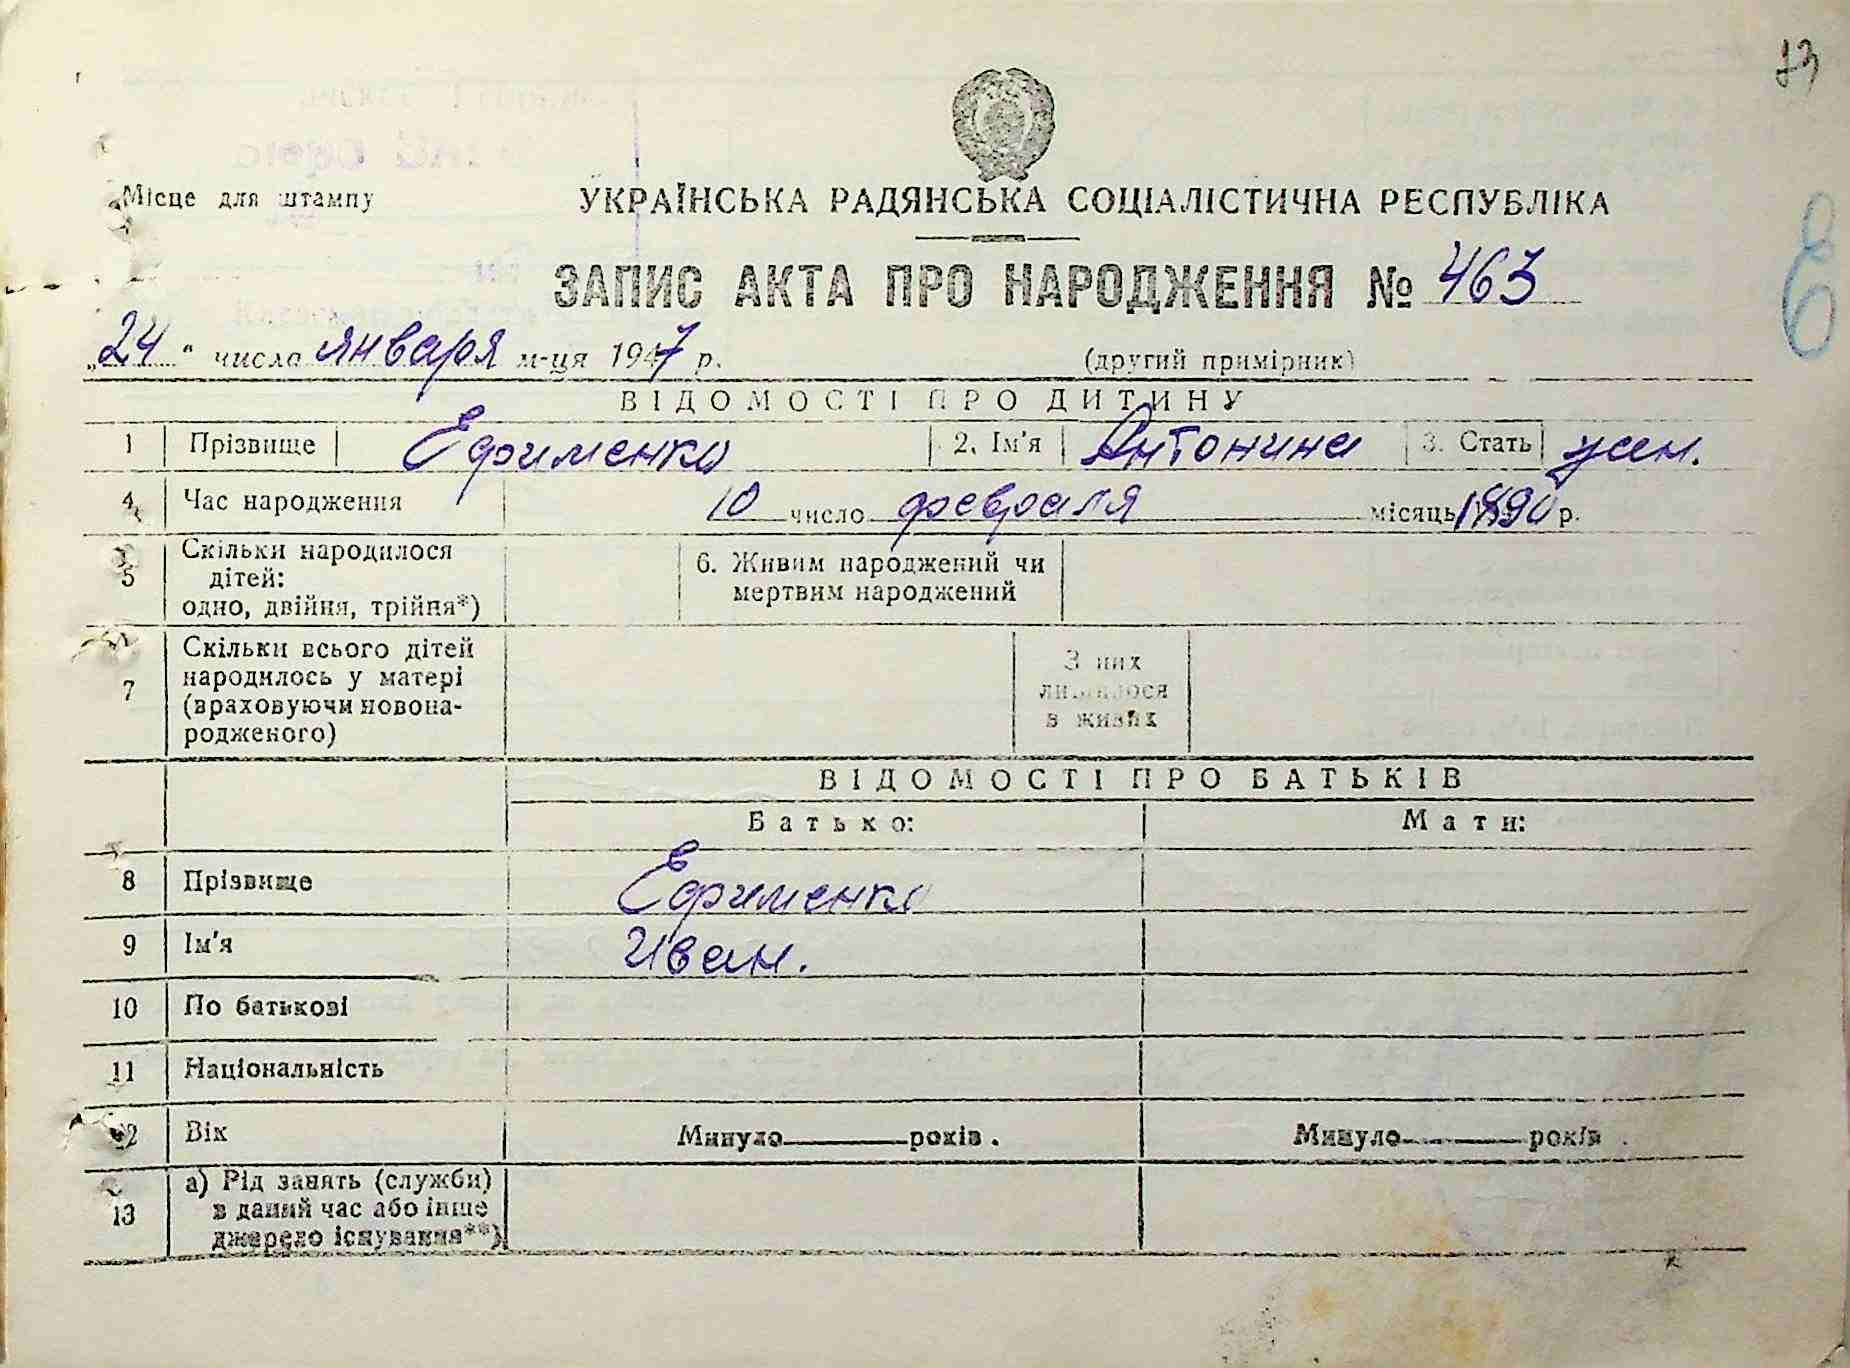 Місце для штампу
УКРАЇНСЬКА РАДЯНСЬКА СОЦІАЛІСТИЧНА РЕСПУБЛІКА
ЗАПИС АКТА ПРО НАРОДЖЕННЯ № 463
„24" число января м-ця 1947 р. (другий примірник)
ВІДОМОСТІ ПРО ДИТИНУ
1 Прізвище Ефименко 2. Ім'я Антонина 3. Стать жен.
4 Час народження 10 число февраля місяць 1890 р.
5 Скільки народилося дітей: одно, двійня, трійня*) 6. Живим народжений чи мертвим народжений
7 Скільки всього дітей народилось у матері (враховуючи новонародженого) З них лишилося в живих
ВІДОМОСТІ ПРО БАТЬКІВ
Батько: Мати:
8 Прізвище Ефименко
9 Ім'я Иван.
10 По батькові
11 Національність
12 Вік Минуло років. Минуло років.
13 а) Рід занять (служби) в даний час або інше джерело існування**)